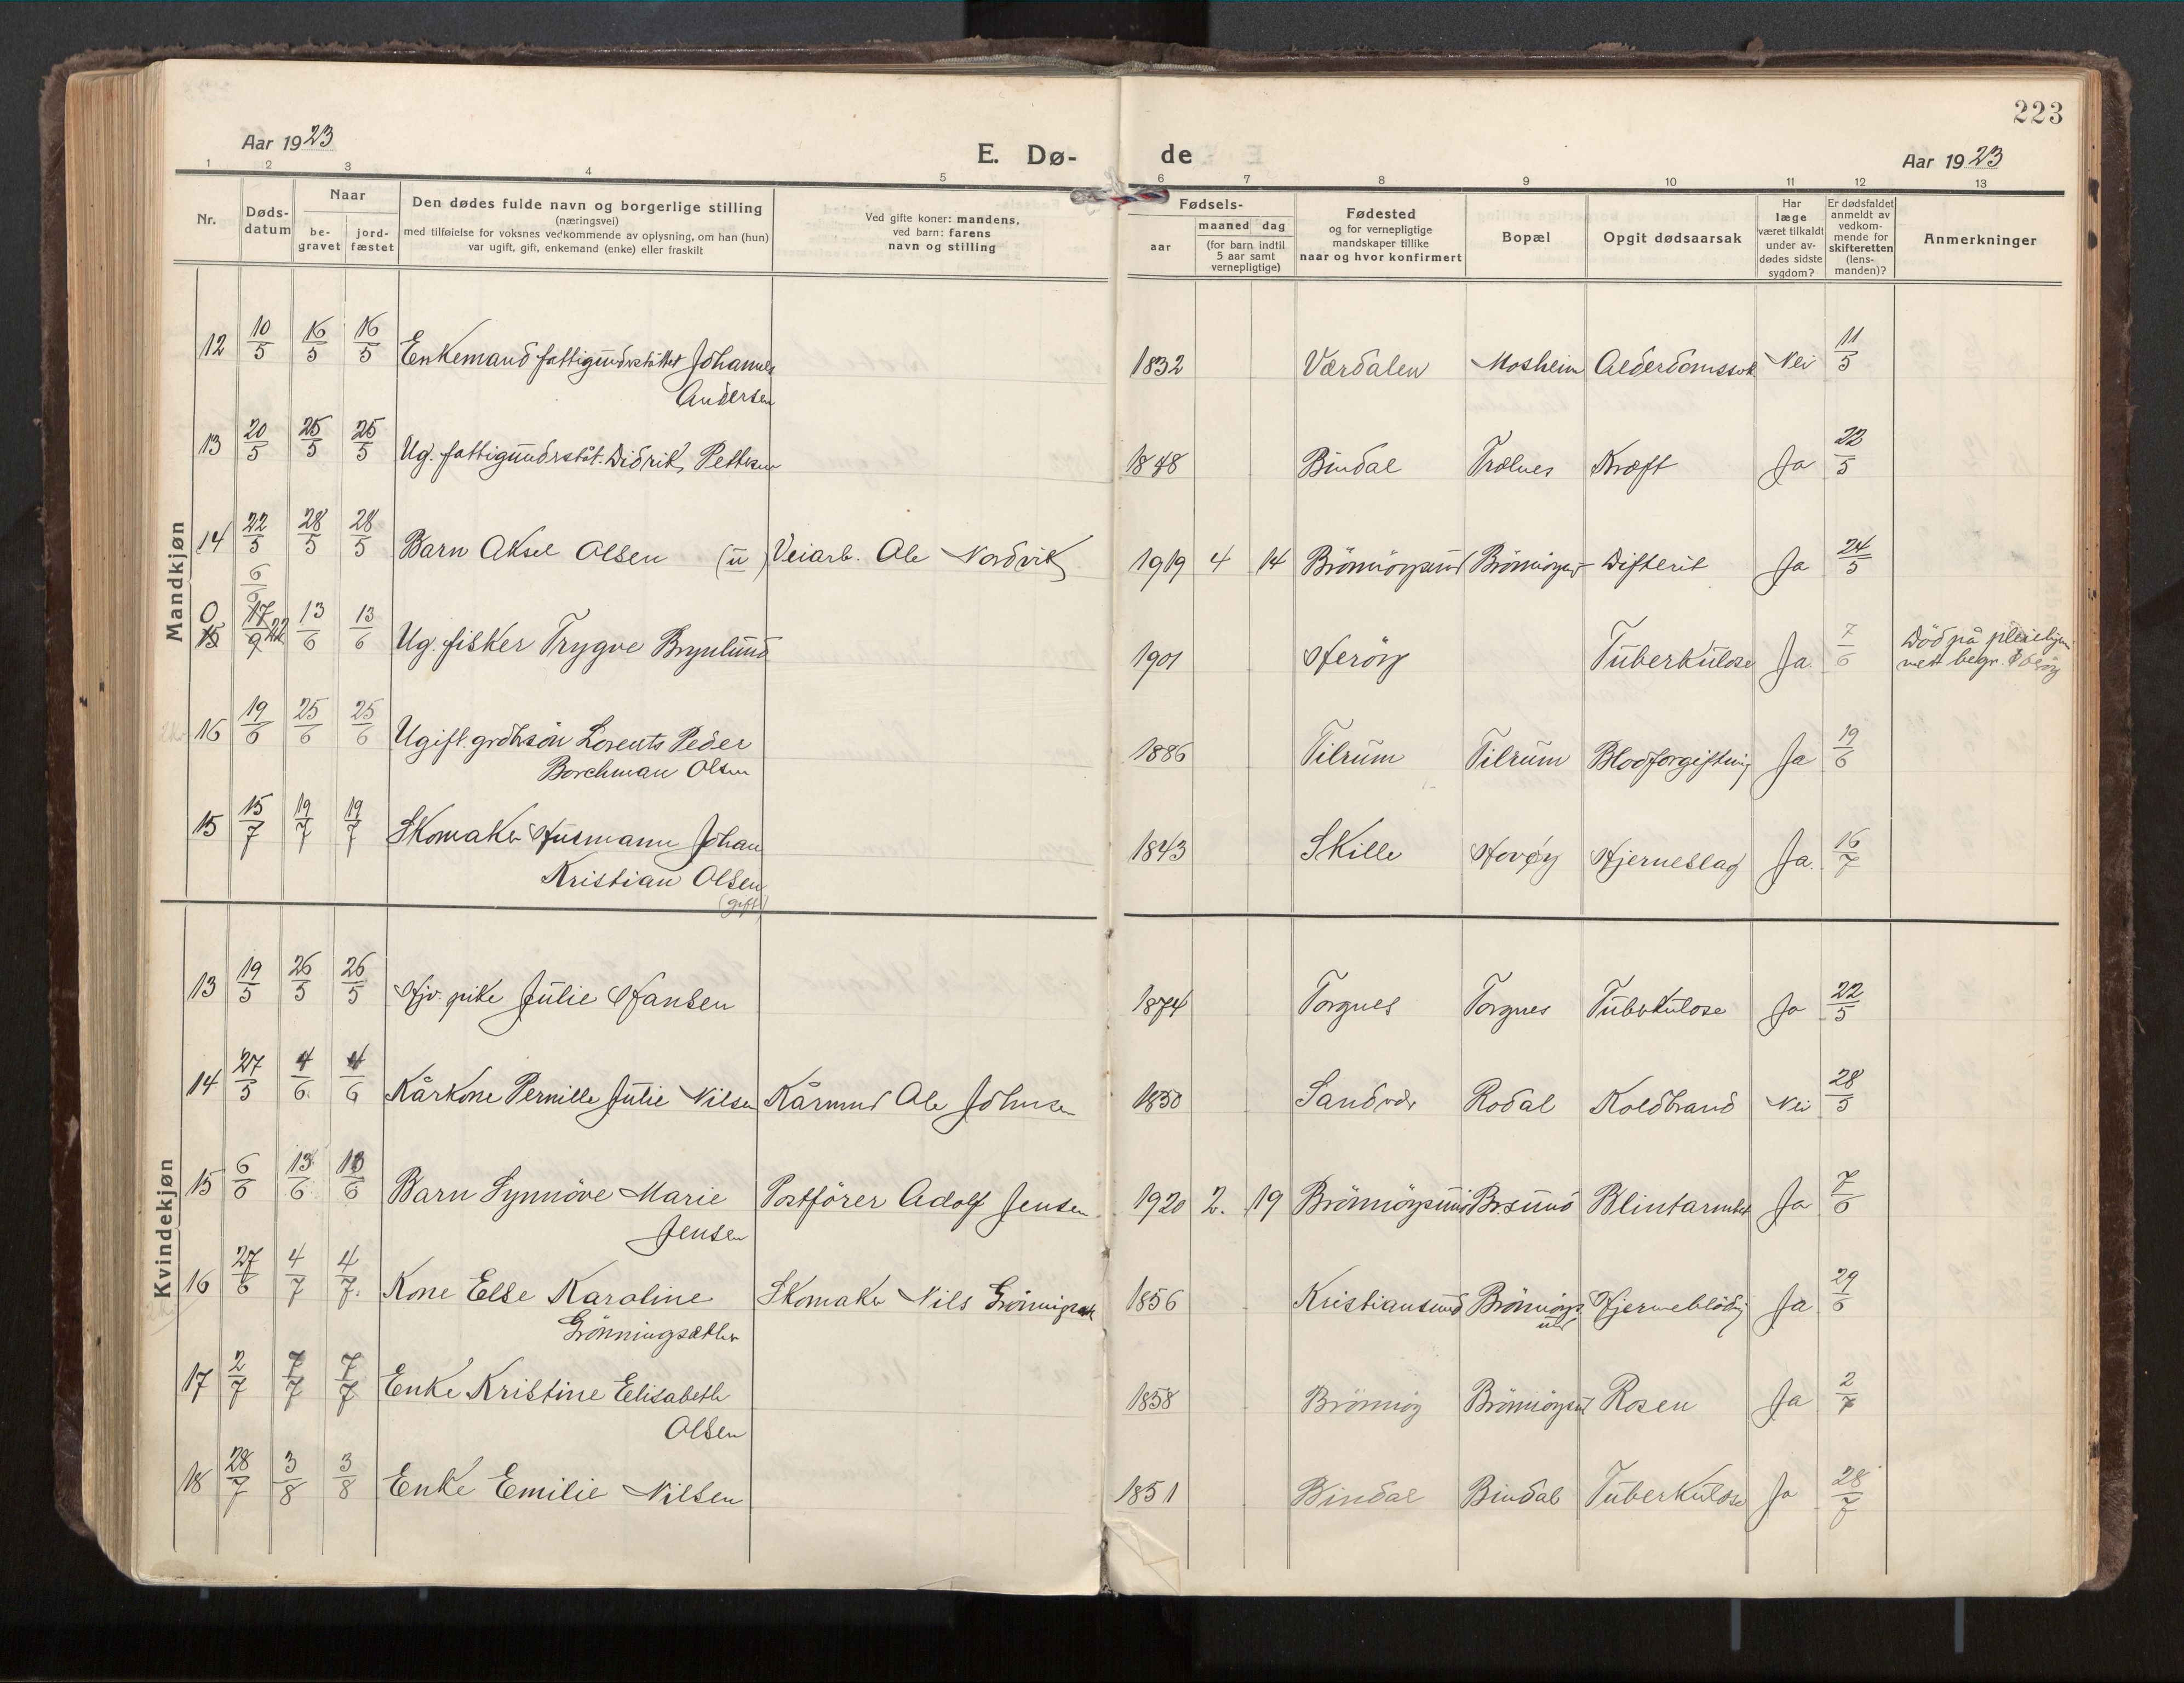 223
Aar 1923
E. Dø-
de
Aar 1923
1 2 3 4 5 6 7 8 9 10 11 12 13
Nr.
Døds-
datum
Naar
be-
gravet
jord-
fæstet
Den dødes fulde navn og borgerlige stilling
(næringsvei)
med tilføielse for voksnes vedkommende av oplysning, om han (hun)
var ugift, gift, enkemand (enke) eller fraskilt
Ved gifte koner: mandens,
ved barn: farens
navn og stilling
Fødsels-
aar
maaned dag
(for barn indtil
5 aar samt
vernepligtige)
Fødested
og for vernepligtige
mandskaper tillike
naar og hvor konfirmert
Bopæl
Opgit dødsaarsak
Har
læge
været tilkaldt
under av-
dødes sidste
sygdom?
Er dødsfaldet
anmeldt av
vedkom-
mende for
skifteretten
(lens-
manden)?
Anmerkninger
Mandkjøn
12 10/5 16/5 16/5 Enkemand fattigunderstøttet Johannes 1832 Værdalen Mosheim Alderdomssvak Nei 11/5
Andersen
13 20/5 25/5 25/5 Ug. fattigunderstøt. Didrik Pettersen 1848 Bindal Trælnes Kræft Ja 22/5
14 22/5 28/5 28/5 Barn Aksel Olsen (u) Veiarb. Ole Nordvik 1919 4 14 Brönnöysund Brönnöysund Difterit Ja 24/5
6/6
0 15 17/9 22 13/6 13/6 Ug. fisker Trygve Brynlund 1901 Heröy Tuberkulose Ja. 7/6 Död på pleiehjem-
met begr. Heröy
16 19/6 25/6 25/6 Ugift. grdbr.sön Lorents Peder 1886 Tilrum Tilrum Blodforgiftning Ja 19/6
Borchman Olsen
15 15/7 19/7 19/7 Skomaker Husmann Johan 1843 Skille Havøy Hjerneslag Ja. 16/7
Kristian Olsen
(gift)
Kvindekjøn
13 19/5 26/5 26/5 Hjv. pike Julie Hansen 1874 Torgnes Torgnes Tuberkulose Ja 22/5
14 27/5 4/6 4/6 Kårkone Pernille Julie Nilsen Kårmand Ole Johnsen 1850 Sandvær Rodal Koldbrand Nei 28/5
15 6/6 13/6 13/6 Barn Synnöve Marie Postförer Adolf Jensen 1920 2. 19 Brönnöysund Br.sund Blintarmbet Ja 7/6
Jensen
16 27/6 4/7 4/7. Kone Else Karoline Skomaker Nils Grönningsæter 1856 Kristiansund Brönnöys- Hjerneblödnig Ja 29/6
Grönningsæther und
17 2/7 7/7 7/7 Enke Kristine Elisabeth 1858 Brönnöy Brönnöysund Rosen Ja 2/7
Olsen
18 28/7 3/8 3/8 Enke Emilie Nilsen 1851 Bindal Bindal Tuberkulose Ja 28/7